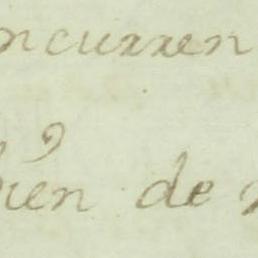 ncurren
bien de